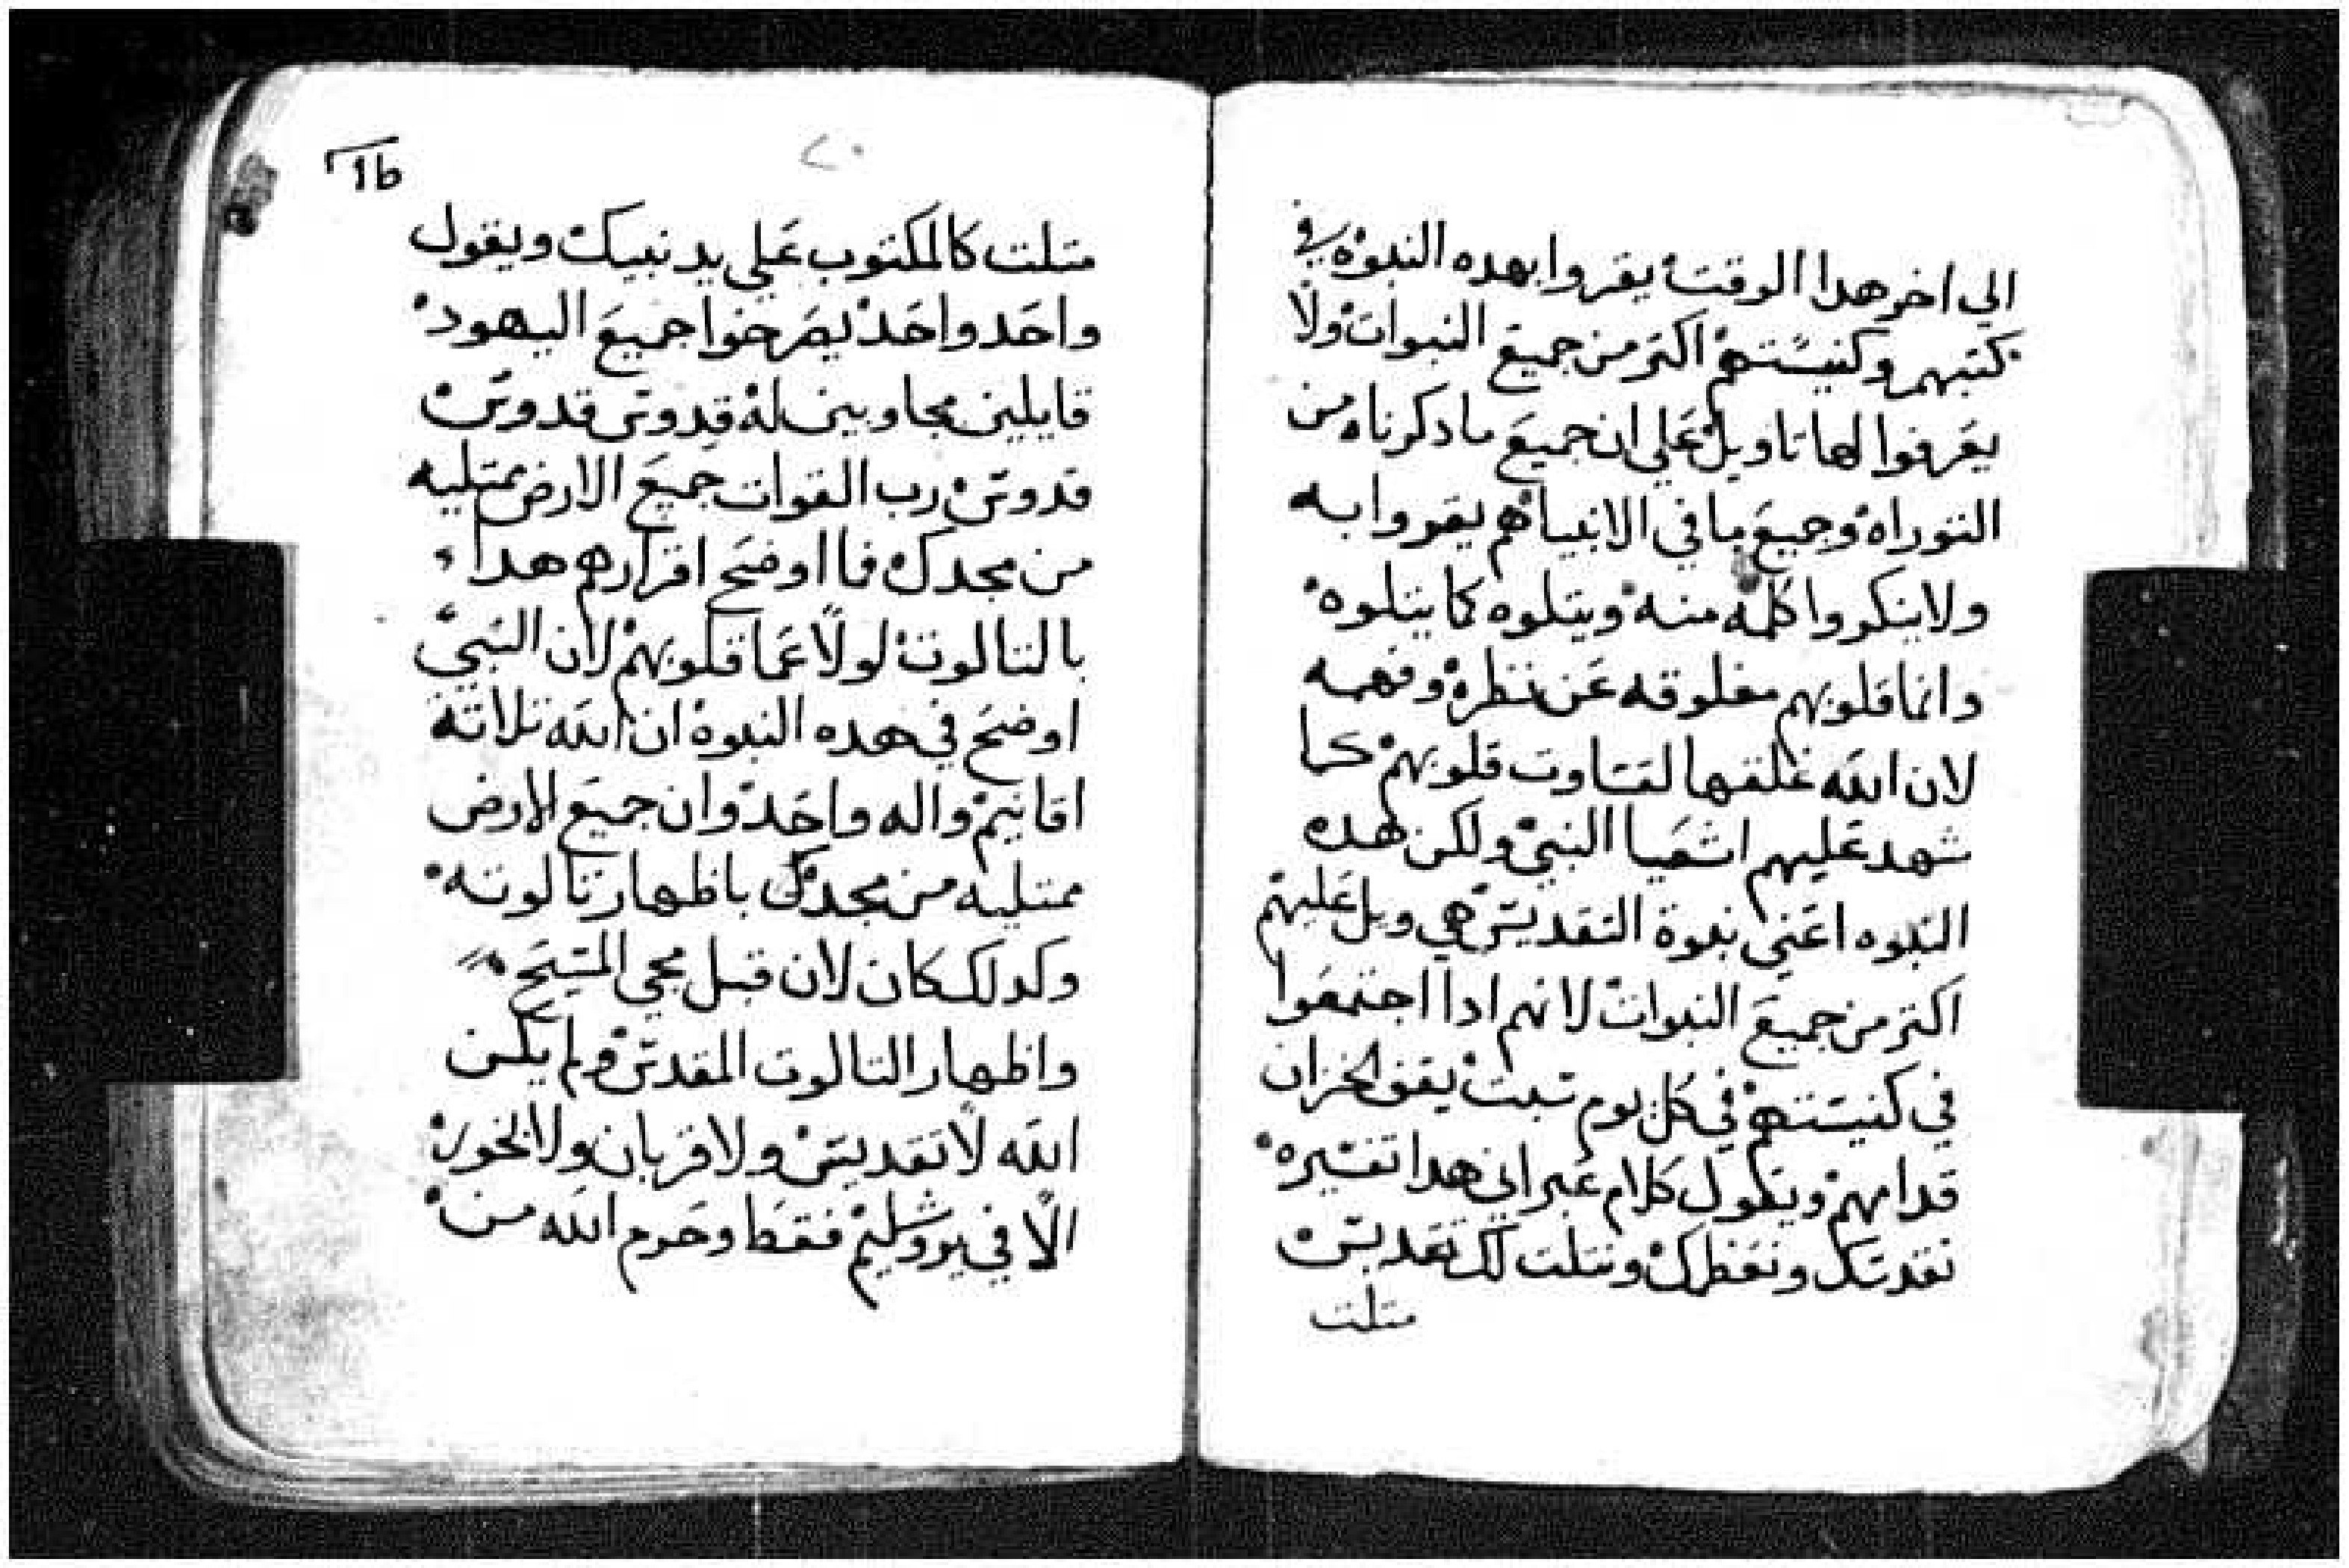 الي اخر هدا الوقت يقروا بهده النبوه في
كتبهم وكنيستهم اكتر من جميع النبوات ولا
يعرفوا لها تاويل علي ان جميع ما دكرناه من
التوراه وجميع ما في الانبياهم يقروا به
ولا ينكروا كلمه منه ويتلوه كما يتلوه
وانما قلوبهم مغلوقه عن نظره وفهمه
لان الله غلقها لقساوت قلوبهم كما
شهد عليهم اشعيا النبي ولكن هده
النبوه اعني نبوة التقديس هي ويل عليهم
اكتر من جميع النبوات لانهم ادا اجتمعوا
في كنيستهم في كل يوم سبت يقف الخزان
قدامهم ويقول كلام عبراني هدا تفسيره
نقدسك ونعظمك ونتلت لك تقديس
متلت
٢٠
متلت كالمكتوب علي يد نبيك ويقول
واحد واحد يصرخوا جميع اليهود
قايلين مجاوبين له قدوس قدوس
قدوس رب القوات جميع الارض ممتليه
من مجدك فما اوضح اقرارهم هدا
بالتالوت لولا عما قلوبهم لان النبي
اوضح في هده النبوه ان الله تلاتة
اقانيم واله واحد وان جميع الارض
ممتليه من مجدك باظهار تالوته
وكدلك كان لان قبل مجي المسيح
واظهار التالوت المقدس ولم يكن
الله لا تقديس ولا قربان ولا بخور
الا في يروشليم فقط وحرم الله من